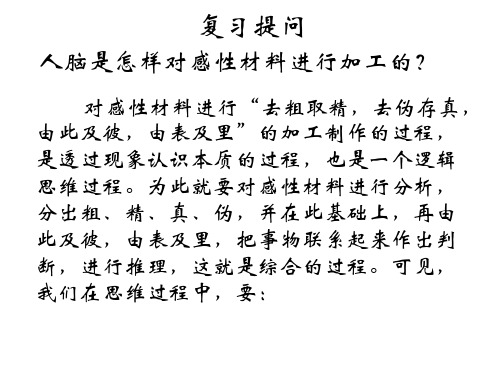 复习提问
人脑是怎样对感性材料进行加工的？
对感性材料进行“去粗取精，去伪存真，
由此及彼，由表及里”的加工制作的过程，
是透过现象认识本质的过程，也是一个逻辑
思维过程。为此就要对感性材料进行分析，
分出粗、精、真、伪，并在此基础上，再由
此及彼，由表及里，把事物联系起来作出判
断，进行推理，这就是综合的过程。可见，
我们在思维过程中，要：